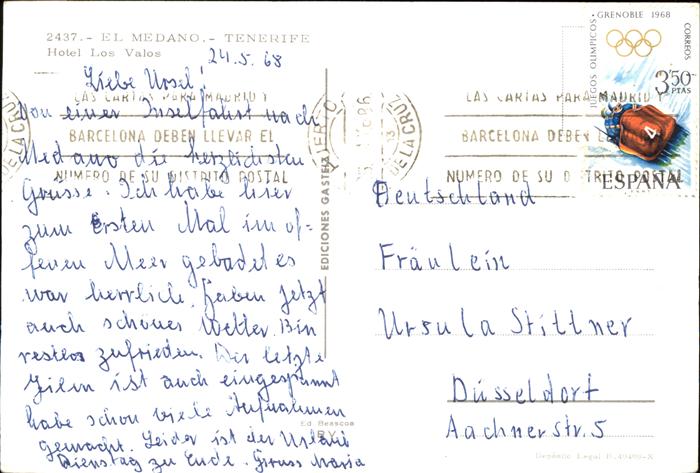 2437.- EL MEDANO.- TENERIFE
Hotel Los Valos
24.5.68
Liebe Ursel!
Von einer Inselfahrt nach
Medano die herzlichsten
Grüsse. Ich habe hier
zum ersten Mal im of-
fenen Meer gebadet es
war herrlich. Haben jetzt
auch schönes Wetter. Bin
restlos zufrieden. Der letzte
Film ist auch eingespannt
habe schon viele Aufnahmen
gemacht. Leider ist der Urlaub
Dienstag zu Ende. Gruss Maria
LAS CARTAS PARA MADRID Y
BARCELONA DEBEN LLEVAR EL
NUMERO DE SU DISTRITO POSTAL
EDICIONES GASTEIZ
Ed Beascoa
DE LA CRUZ
LAS CARTAS PARA MADRID Y
BARCELONA DEBEN LLE
NUMERO DE SU DISTRITO POSTAL
JUEGOS OLIMPICOS - GRENOBLE 1968
CORREOS
3,50
PTAS
4
ESPAÑA
Deutschland
Fräulein
Ursula Stittner
Düsseldorf
Aachnerstr. 5
Depósito Legal B.49499-X